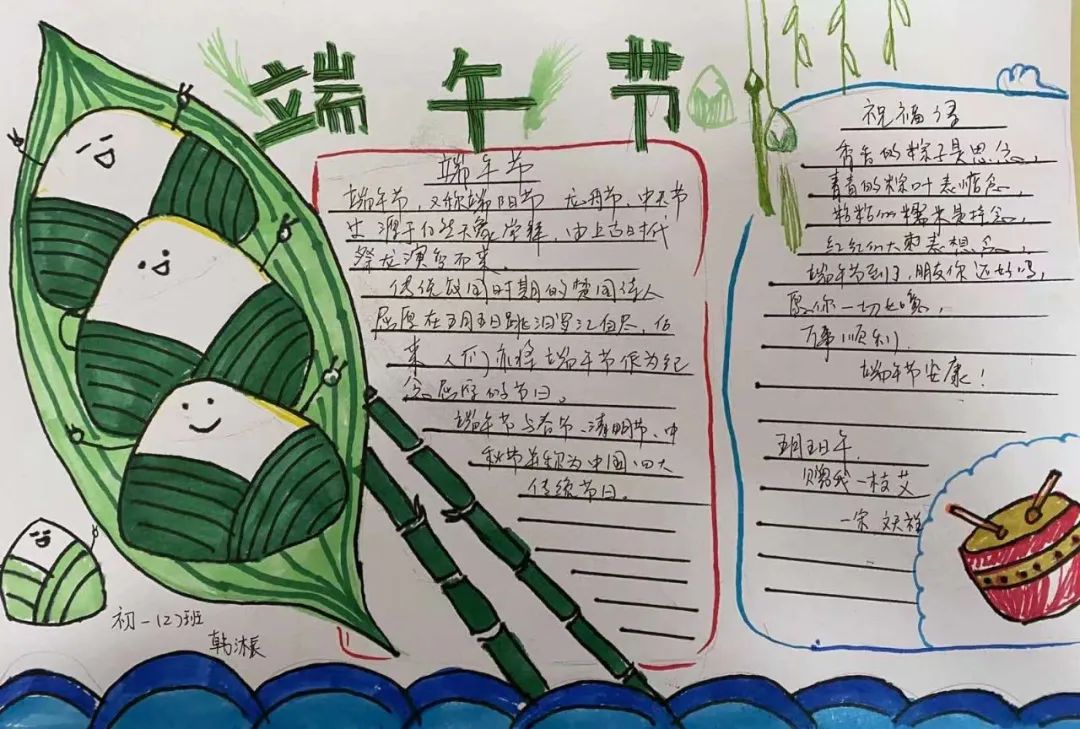 端午节
端午节
端午节，又称端阳节、龙舟节、中天节
源于自然天象崇拜，由上古时代
祭龙演变而来。
传说战国时期的楚国诗人
屈原在五月五日跳汨罗江自尽，后
来人们亦将端午节作为纪
念屈原的节日。
端午节与春节、清明节、中
秋节并称为中国四大
传统节日。
祝福语
香香的粽子是思念，
青青的粽叶表惦念，
粘粘的糯米是挂念，
红红的大枣表想念，
端午节到了，朋友你还好吗，
愿你一切如意，
万事顺利，
端午节安康！
五月五日午，
赠我一枝艾
一宋 文天祥
初一(2)班
韩沐